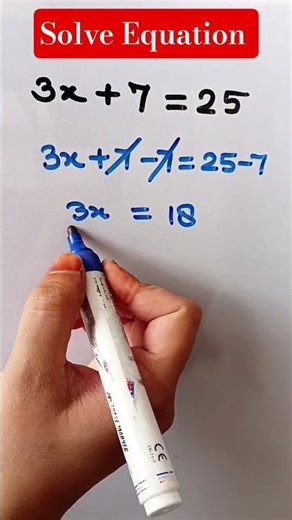 Solve Equation
3x + 7 = 25
3x + 7 - 7 = 25 - 7
3x = 18
CE